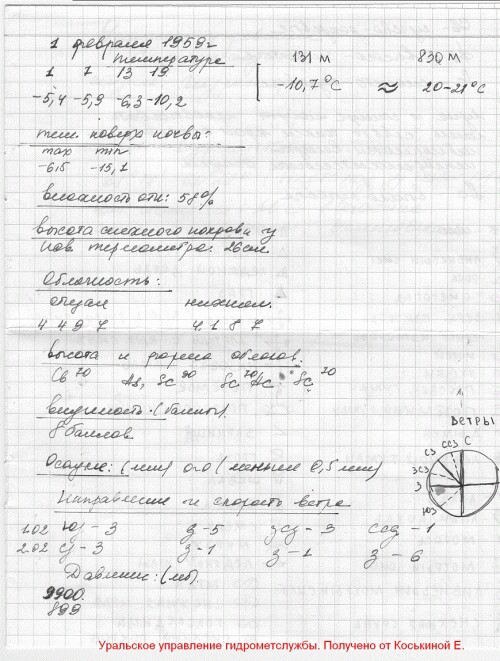 1 февраля 1959г
температура
1 7 13 19
-5,4 -5,9 -6,3 -10,2
131 м 830 м
-10,7°С ≈ 20-21°С
тем. поверх почвы:
max min
-6,5 -15,1
влажность отн: 58%
высота снежного покрова у
пов. термометра: 26см
Облачность:
общая нижняя
4 4 9 7 4 1 8 7
высота и форма облаков.
Sc
видимость (баллы).
8 баллов
Осадки: (мм) 0,0 (меньше 0,5 мм)
Направление и скорость ветра
1.02 юз - 3 з - 5 зсз - 3 ссз - 1
2.02 сз - 3 з - 1 з - 1 з - 6
Давление: (мб).
9900.
899
Ветры
СЗ ССЗ С
ЗСЗ
З
ЮЗ
Уральское управление гидрометслужбы. Получено от Коськиной Е.